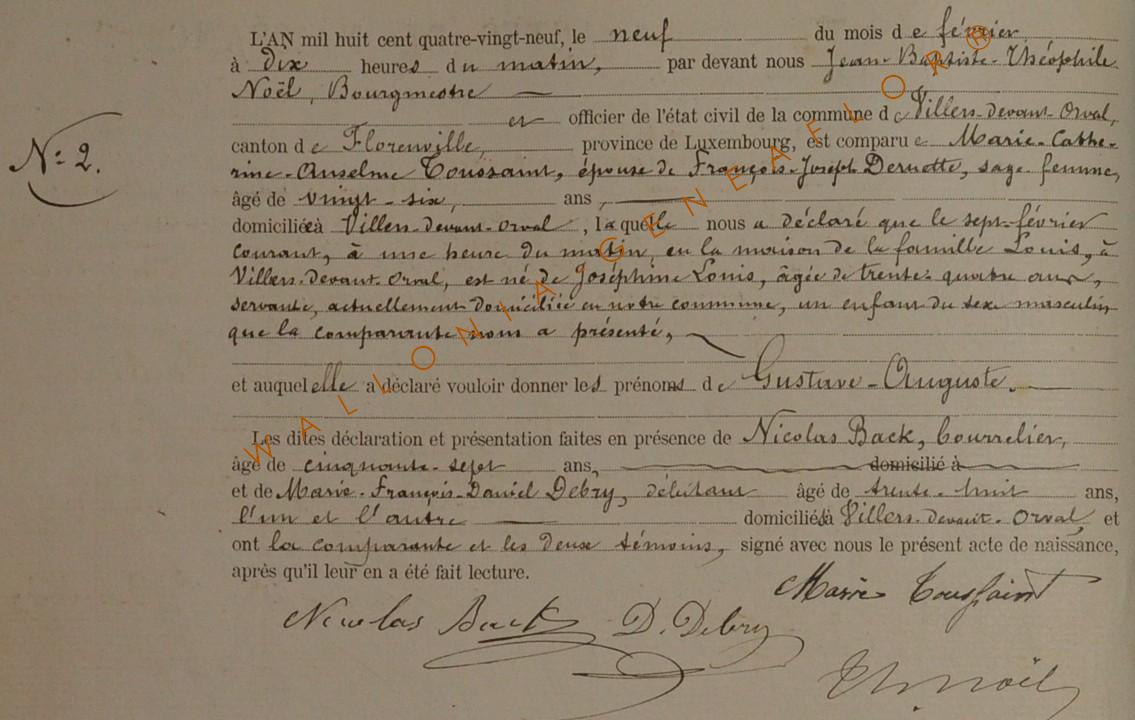 L'AN mil huit cent quatre-vingt-neuf, le neuf du mois de février
à dix heures du matin, par devant nous Jean-Baptiste-Théophile
Noël, Bourgmestre
et officier de l'état civil de la commune de Villers-devant-Orval,
N: 2.
canton de Florenville, province de Luxembourg, est comparue Marie-Cathe-
rine-Anselme Toussaint, épouse de François-Joseph Dernotte, sage femme,
âgé de vingt-six, ans,
domiciliée à Villers-devant-Orval, laquelle nous a déclaré que le sept-février
courant, à une heure du matin, en la maison de la famille Louis, à
Villers-devant-Orval, est né de Joséphine Louis, âgée de trente-quatre ans,
servante, actuellement domiciliée en notre commune, un enfant du sexe masculin
que la comparante nous a présenté,
et auquel elle a déclaré vouloir donner les prénoms de Gustave-Auguste.
Les dites déclaration et présentation faites en présence de Nicolas Back, bourrelier,
âgé de cinquante-sept ans, domicilié à
et de Marie-François-Daniel Debry, débitant âgé de trente-huit ans,
l'un et l'autre domiciliés à Villers-devant-Orval, et
ont la comparante et les deux témoins, signé avec nous le présent acte de naissance,
après qu'il leur en a été fait lecture.
Marie Toussaint
Nicolas Back D. Debry
Th. Noël
WALLONIA © GENEAFLOR ®